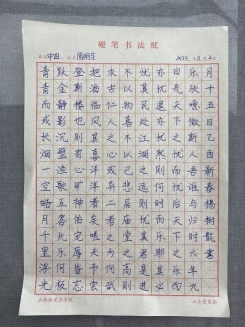 硬笔书法纸
月十五日乙巳新春杨树懿书
乐欤噫微斯人吾谁与归时六年九
曰先天下之忧而忧后天下之乐而
亦忧退亦忧然则何时而乐耶其必
忧其民处江湖之远则忧其君是进
不以物喜不以己悲居庙堂之高则
求古仁人之心或异二者之为何哉
把酒临风其喜洋洋者矣嗟夫予尝
登斯楼也则有心旷神怡宠辱皆忘
跃金静影沉璧渔歌互答此乐何极
青青而或长烟一空皓月千里浮光